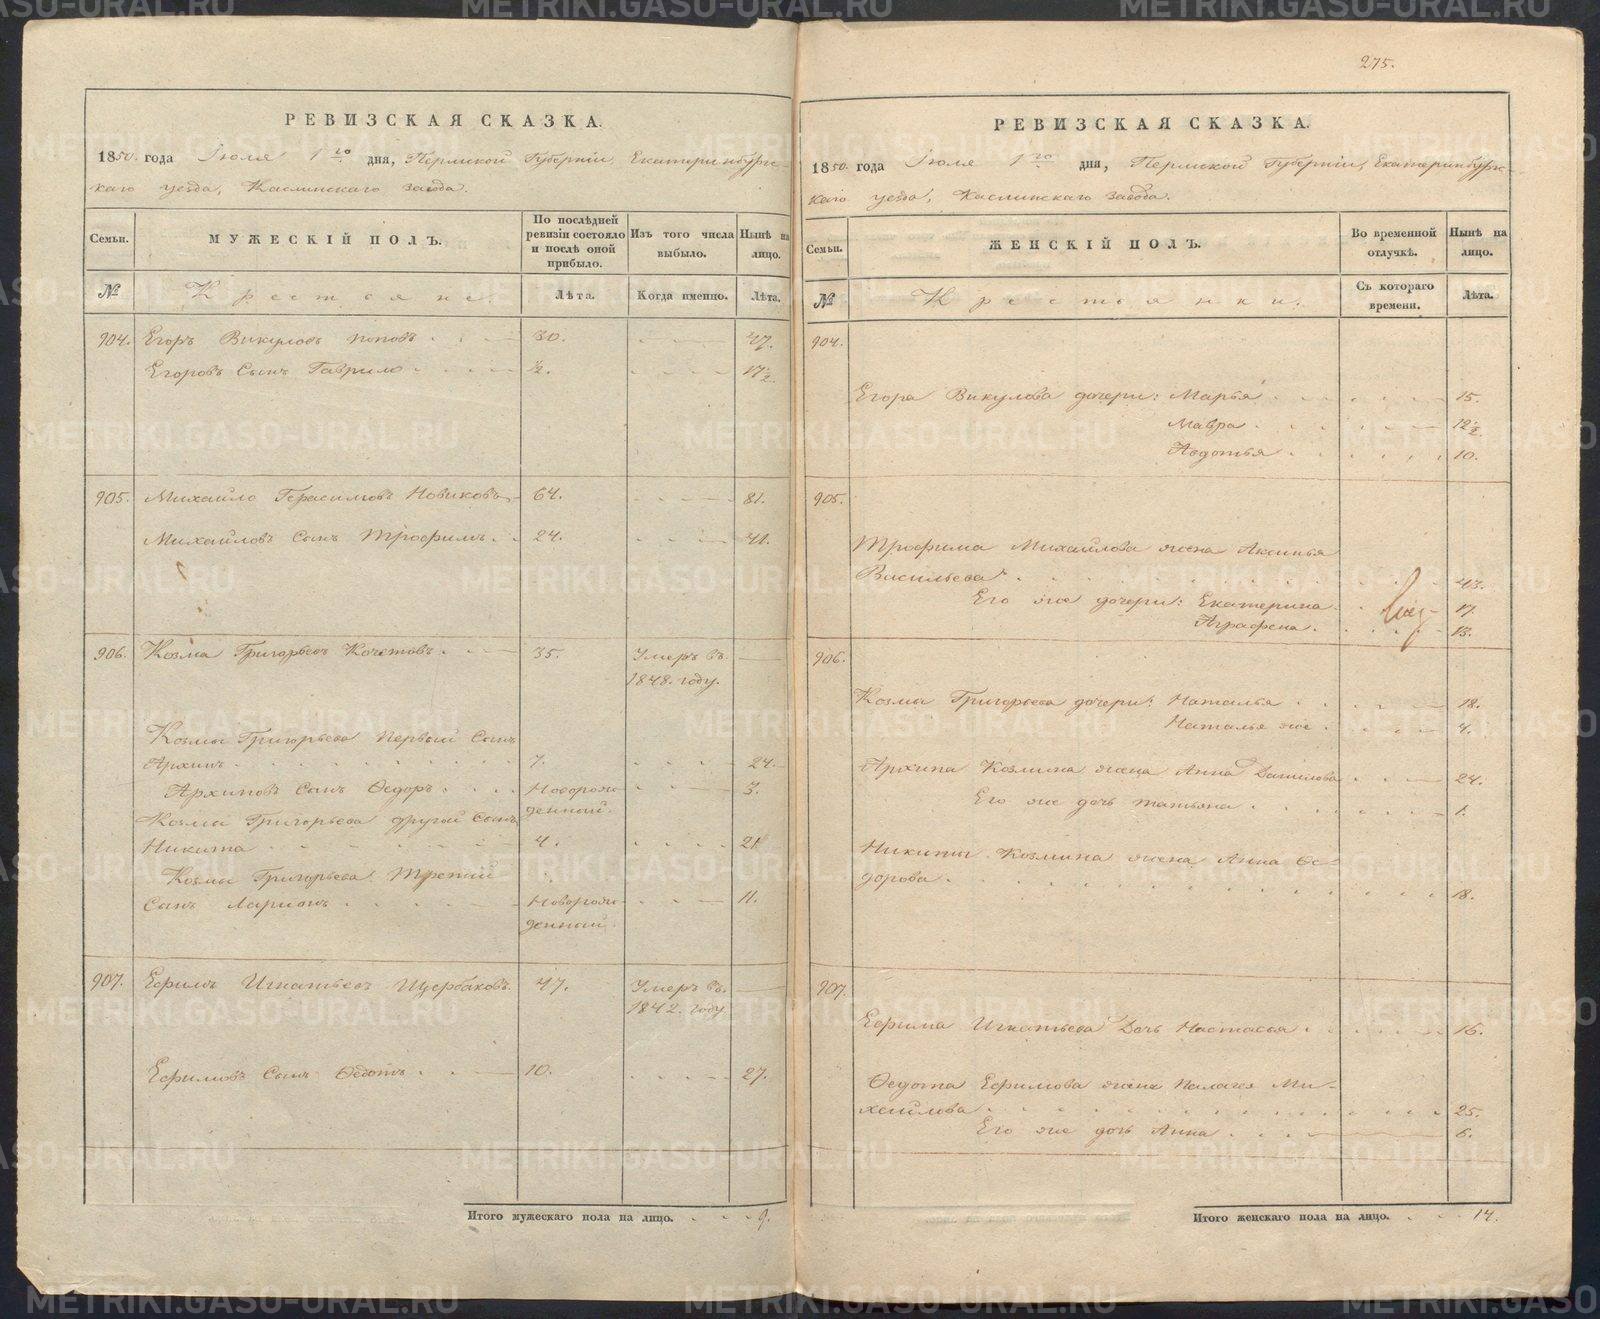 275.
РЕВИЗСКАЯ СКАЗКА.
1850. года Іюля 1го дня, Пермской Губерніи, Екатеринбург-
скаго уезда, Каслинскаго завода.
Семьи.
МУЖЕСКІЙ ПОЛЪ.
По послѣдней ревизіи состояло и послѣ оной прибыло.
Изъ того числа выбыло.
Нынѣ на лицо.
№
Крестьяне.
Лѣта.
Когда именно.
Лѣта.
904. Егоръ Викуловъ Поповъ 30. 47.
Егоровъ Сынъ Гаврило ½. 17½.
905. Михайло Герасимовъ Новиковъ 64. 81.
Михайловъ Сынъ Трофимъ 24. 41.
906. Козма Григорьевъ Кочетовъ 35. Умеръ въ
1848. году.
Козмы Григорьева Первый Сынъ
Архипъ 7. 24.
Архиповъ Сынъ Ѳедоръ Новорож- 3.
денный.
Козмы Григорьева другой Сынъ
Никита 4. 21.
Козмы Григорьева Третій
Сынъ Ларионъ Новорож- 11.
денный
907. Ефимъ Игнатьевъ Щербаковъ. 47. Умеръ въ
1842. году
Ефимовъ Сынъ Ѳедотъ 10. 27.
Итого мужескаго пола на лицо. 9.
РЕВИЗСКАЯ СКАЗКА.
1850. года Іюля 1го дня, Пермской Губерніи, Екатеринбург-
скаго уезда, Каслинскаго завода.
Семьи.
ЖЕНСКІЙ ПОЛЪ.
Во временной отлучкѣ.
Нынѣ на лицо.
№
Крестьянки.
Съ котораго времени.
Лѣта.
904.
Егора Викулова дочери: Марья 15.
Мавра 12½.
Авдотья 10.
905.
Трофима Михайлова жена Аксинья
Васильева 43.
Его же дочери: Екатерина 17.
Аграфена 13.
906.
Козмы Григорьева дочери: Наталья 18.
Наталья же 4.
Архипа Козмина жена Анна Данилова 24.
Его же дочь Татьяна 1.
Никиты Козмина жена Анна Ѳе-
дорова 18.
907.
Ефима Игнатьева Дочь Настасья 16.
Ѳедота Ефимова жена Палагея Ми-
хайлова 25.
Его же дочь Анна 6.
Итого женскаго пола на лицо. 14.
METRIKI.GASO-URAL.RU